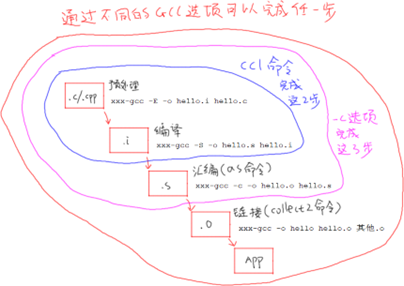 通过不同的Gcc选项可以完成任一步
cc1命令
完成
这2步
预处理
.c/.cpp
xxx-gcc -E -o hello.i hello.c
-c选项
完成
这3步
编译
.i
xxx-gcc -S -o hello.s hello.i
汇编(as命令)
.s
xxx-gcc -c -o hello.o hello.s
链接(collect2命令)
.o
xxx-gcc -o hello hello.o 其他.o
APP